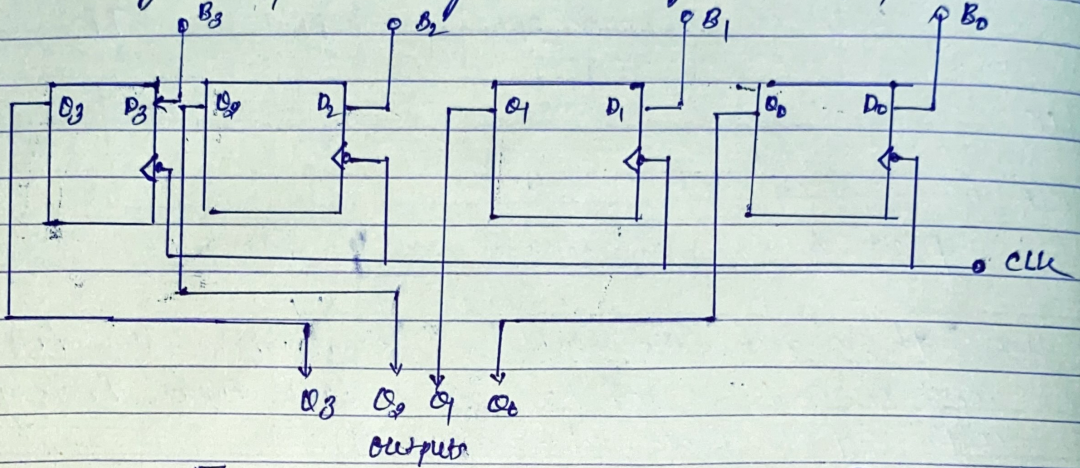 B3 B2 B1 B0
Q3 D3 Q2 D2 Q1 D1 Q0 D0
CLK
Q3 Q2 Q1 Q0
outputs